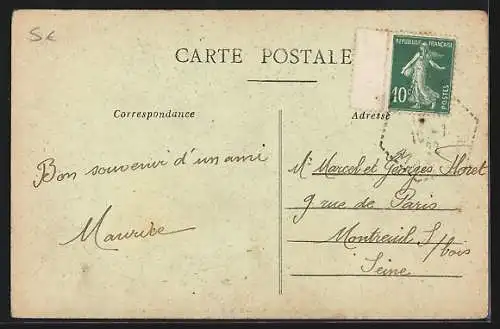 5€
CARTE POSTALE
REPUBLIQUE FRANÇAISE
10c
POSTES
Correspondance
Adresse
Bon souvenir d'un ami
Maurice
Mr Marcel et Georges Horet
9 rue de Paris
Montreuil S/
bois
Seine